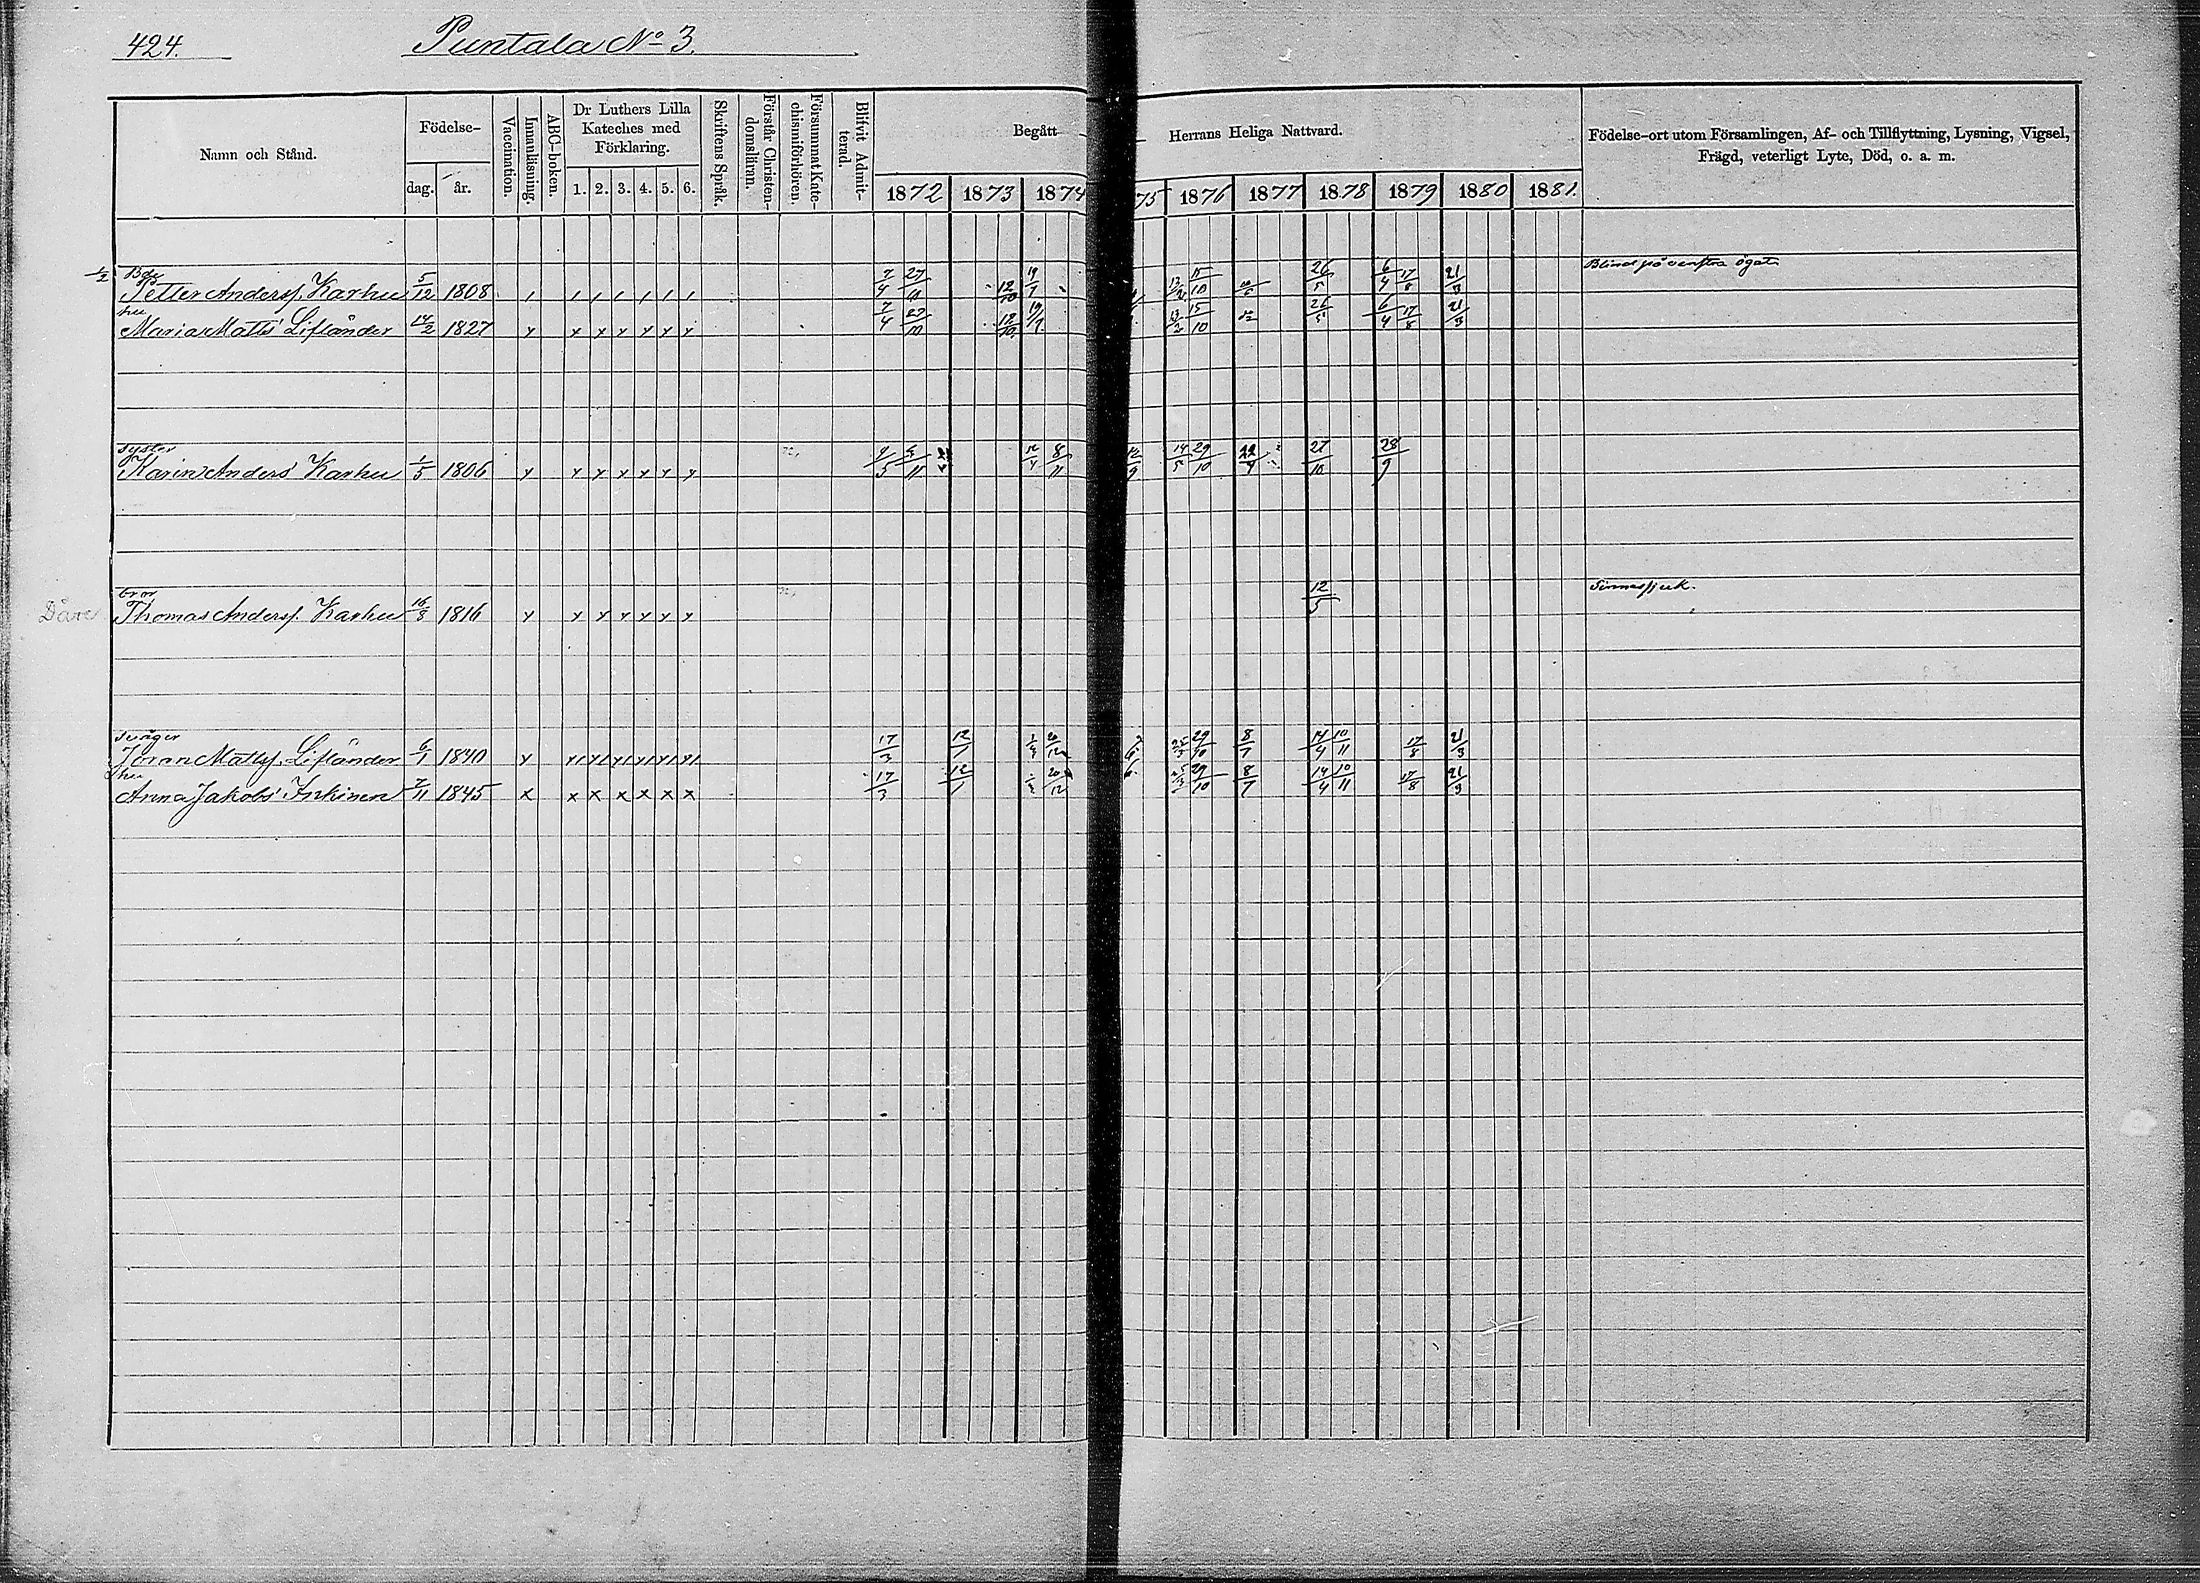 424. Puntala No 3.
Namn och Stånd. Födelse- dag. år. Vaccination. Innanläsning. ABC-boken. Dr Luthers Lilla Kateches med Förklaring. 1. 2. 3. 4. 5. 6. Skriftens Språk. Förstår Christendomsläran. Försummat Katechismiförhören. Blifvit Admitterad. Begått Herrans Heliga Nattvard. Födelse-ort utom Församlingen, Af- och Tillflyttning, Lysning, Vigsel, Frägd, veterligt Lyte, Död, o. a. m.
1872 1873 1874 75 1876 1877 1878 1879 1880 1881.
1/2 Bde Blind på venstra ögat
Petter Anderss. Karhu 5/12 1808 7/4 27/10 12/10 19/7 15/10 26/5 6/4 17/8 21/3
hu
Maria Matts Lifländer 14/2 1827 7/4 27/10 12/10 19/7 13/2 15/10 26/5 6/4 17/8 21/3
syster
Karin Anders Karhu 1/5 1806 12/4 8/11 12/9 14/5 29/10 22/7 27/10 28/9
bror Sinnessjuk.
Dåre Thomas Anderss. Karhu 16/8 1816 12/5
svåger
Göran Matss. Lifländer 6/1 1840 17/3 12/1 20/12 29/10 8/7 14/4 10/11 17/8 21/3
hu
Anna Jakobs Inkinen 7/11 1845 17/3 12/1 20/12 29/10 8/7 14/4 10/11 17/8 21/3